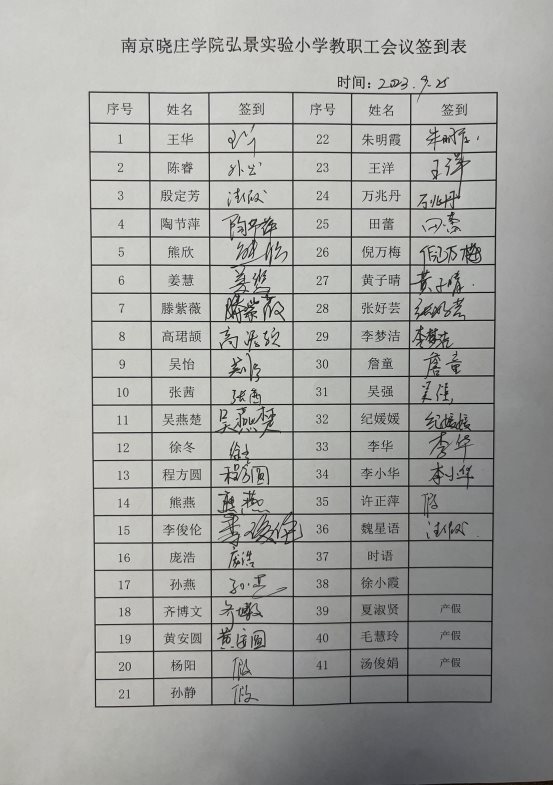 南京晓庄学院弘景实验小学教职工会议签到表
时间：2023.9.25
序号 姓名 签到 序号 姓名 签到
1 王华 22 朱明霞 朱明霞
2 陈睿 外出 23 王洋 王洋
3 殷定芳 24 万兆丹 万兆丹
4 陶节萍 陶节萍 25 田蕾 田蕾
5 熊欣 熊欣 26 倪万梅 倪万梅
6 姜慧 姜慧 27 黄子晴 黄子晴
7 滕紫薇 滕紫薇 28 张好芸 张好芸
8 高珺颉 高珺颉 29 李梦洁 李梦洁
9 吴怡 吴怡 30 詹童 詹童
10 张茜 张茜 31 吴强 吴强
11 吴燕楚 吴燕楚 32 纪媛媛 纪媛媛
12 徐冬 徐冬 33 李华 李华
13 程方圆 程方圆 34 李小华 李小华
14 熊燕 熊燕 35 许正萍 假
15 李俊伦 李俊伦 36 魏星语
16 庞浩 庞浩 37 时语
17 孙燕 38 徐小霞
18 齐博文 齐博文 39 夏淑贤 产假
19 黄安圆 黄安圆 40 毛慧玲 产假
20 杨阳 假 41 汤俊娟 产假
21 孙静 假